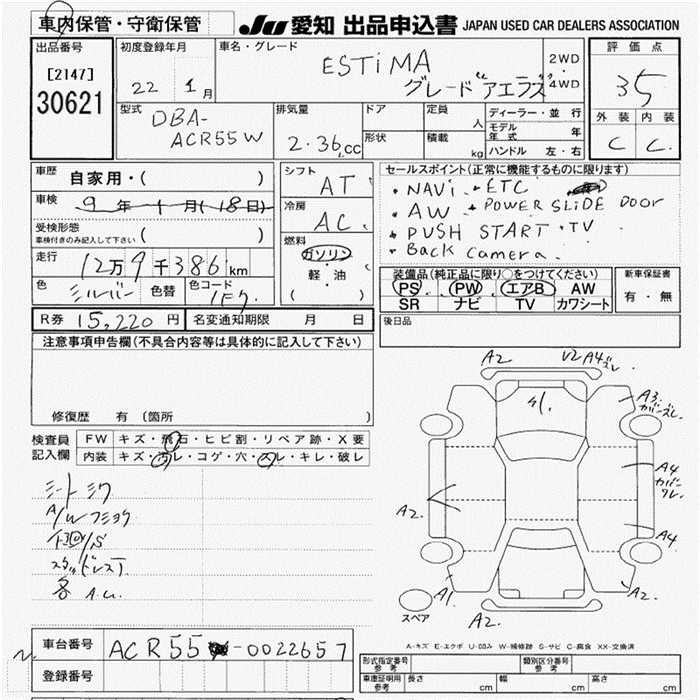 車内保管・守衛保管
JU 愛知 出品申込書 JAPAN USED CAR DEALERS ASSOCIATION
出品番号
[2147]
30621
初度登録年月
22 1月
車名・グレード
ESTiMA
グレード"アエラス"
2WD
・
4WD
評価点
35
外装 内装
C C
型式
DBA-
ACR55W
排気量
2.36cc
ドア
形状
定員
人
積載
kg
ディーラー・並行
モデル年式 年
ハンドル 左・右
車歴
自家用・( )
車検
9年1月(18日)
受検形態
車検付きのみ記入して下さい ( )
走行
12万9千386km
色
シルバー
色替
色コード
1F7
シフト
AT
冷房
AC
燃料
ガソリン
・
軽・油
( )
セールスポイント(正常に機能するものに限ります)
・NAVi ・ETC
・AW ・POWER SLiDE Door
・PUSH START ・TV
・Back Camera
装備品(純正品に限り○をつけてください)
PS PW エアB AW
SR ナビ TV カワシート
新車保証書
有・無
R券 15,220円
名変通知期限 月 日
後日品
注意事項申告欄(不具合内容等は具体的に記入して下さい)
修復歴 有(箇所 )
検査員
記入欄
FW キズ・飛石・ヒビ割・リペア跡・X要
内装 キズ・汚レ・コゲ・穴・スレ・キレ・破レ
シートシワ
A/W
各 A.U.
A2
A4
A3
A4
A4
A2
A1
A2
A2
スペア
A-キズ E-エクボ U-凹み W-補修跡 S-サビ C-腐食 XX-交換済
車台番号
ACR55-0022657
登録番号
形式指定番号
参考
類別区分番号
参考
車庫証明用
参考
長さ cm 幅 cm 高さ cm